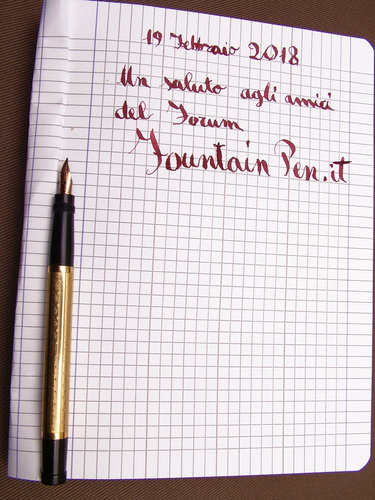 19 Febbraio 2018
Un saluto agli amici
del Forum
Fountain Pen.it